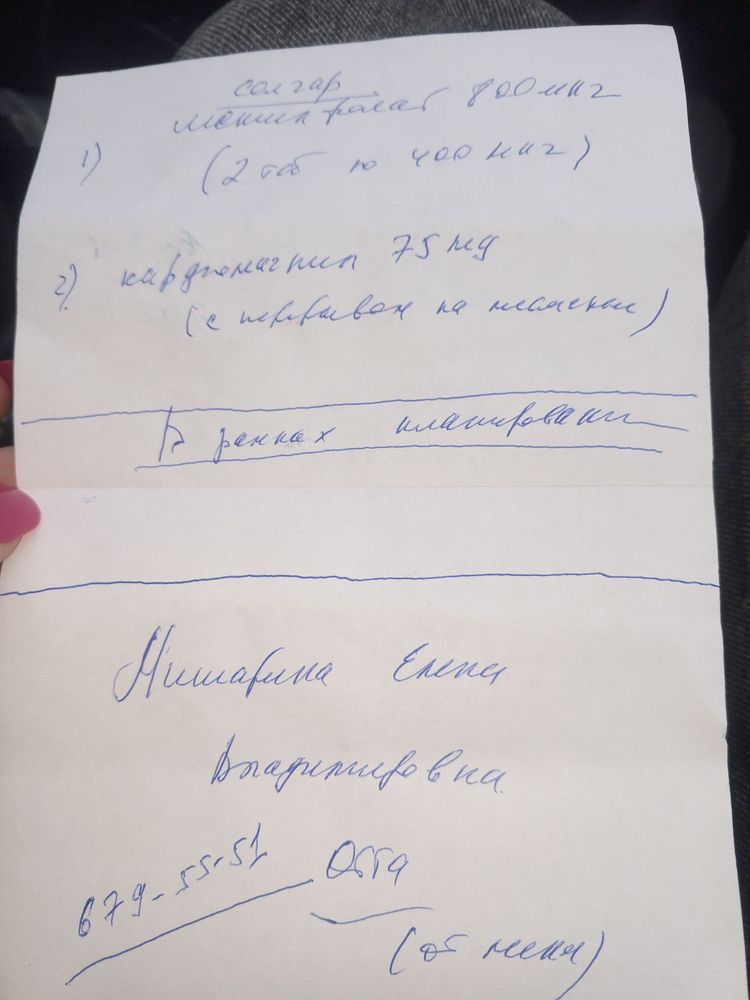 солгар
метилфолат 800 мкг
1) (2 таб по 400 мкг)
2) кардиомагнил 75 мg
(с перерывом на месячные)
В рамках планирования
Мишарина Елена
Владимировна
679-55-51 Отта
(от меня)